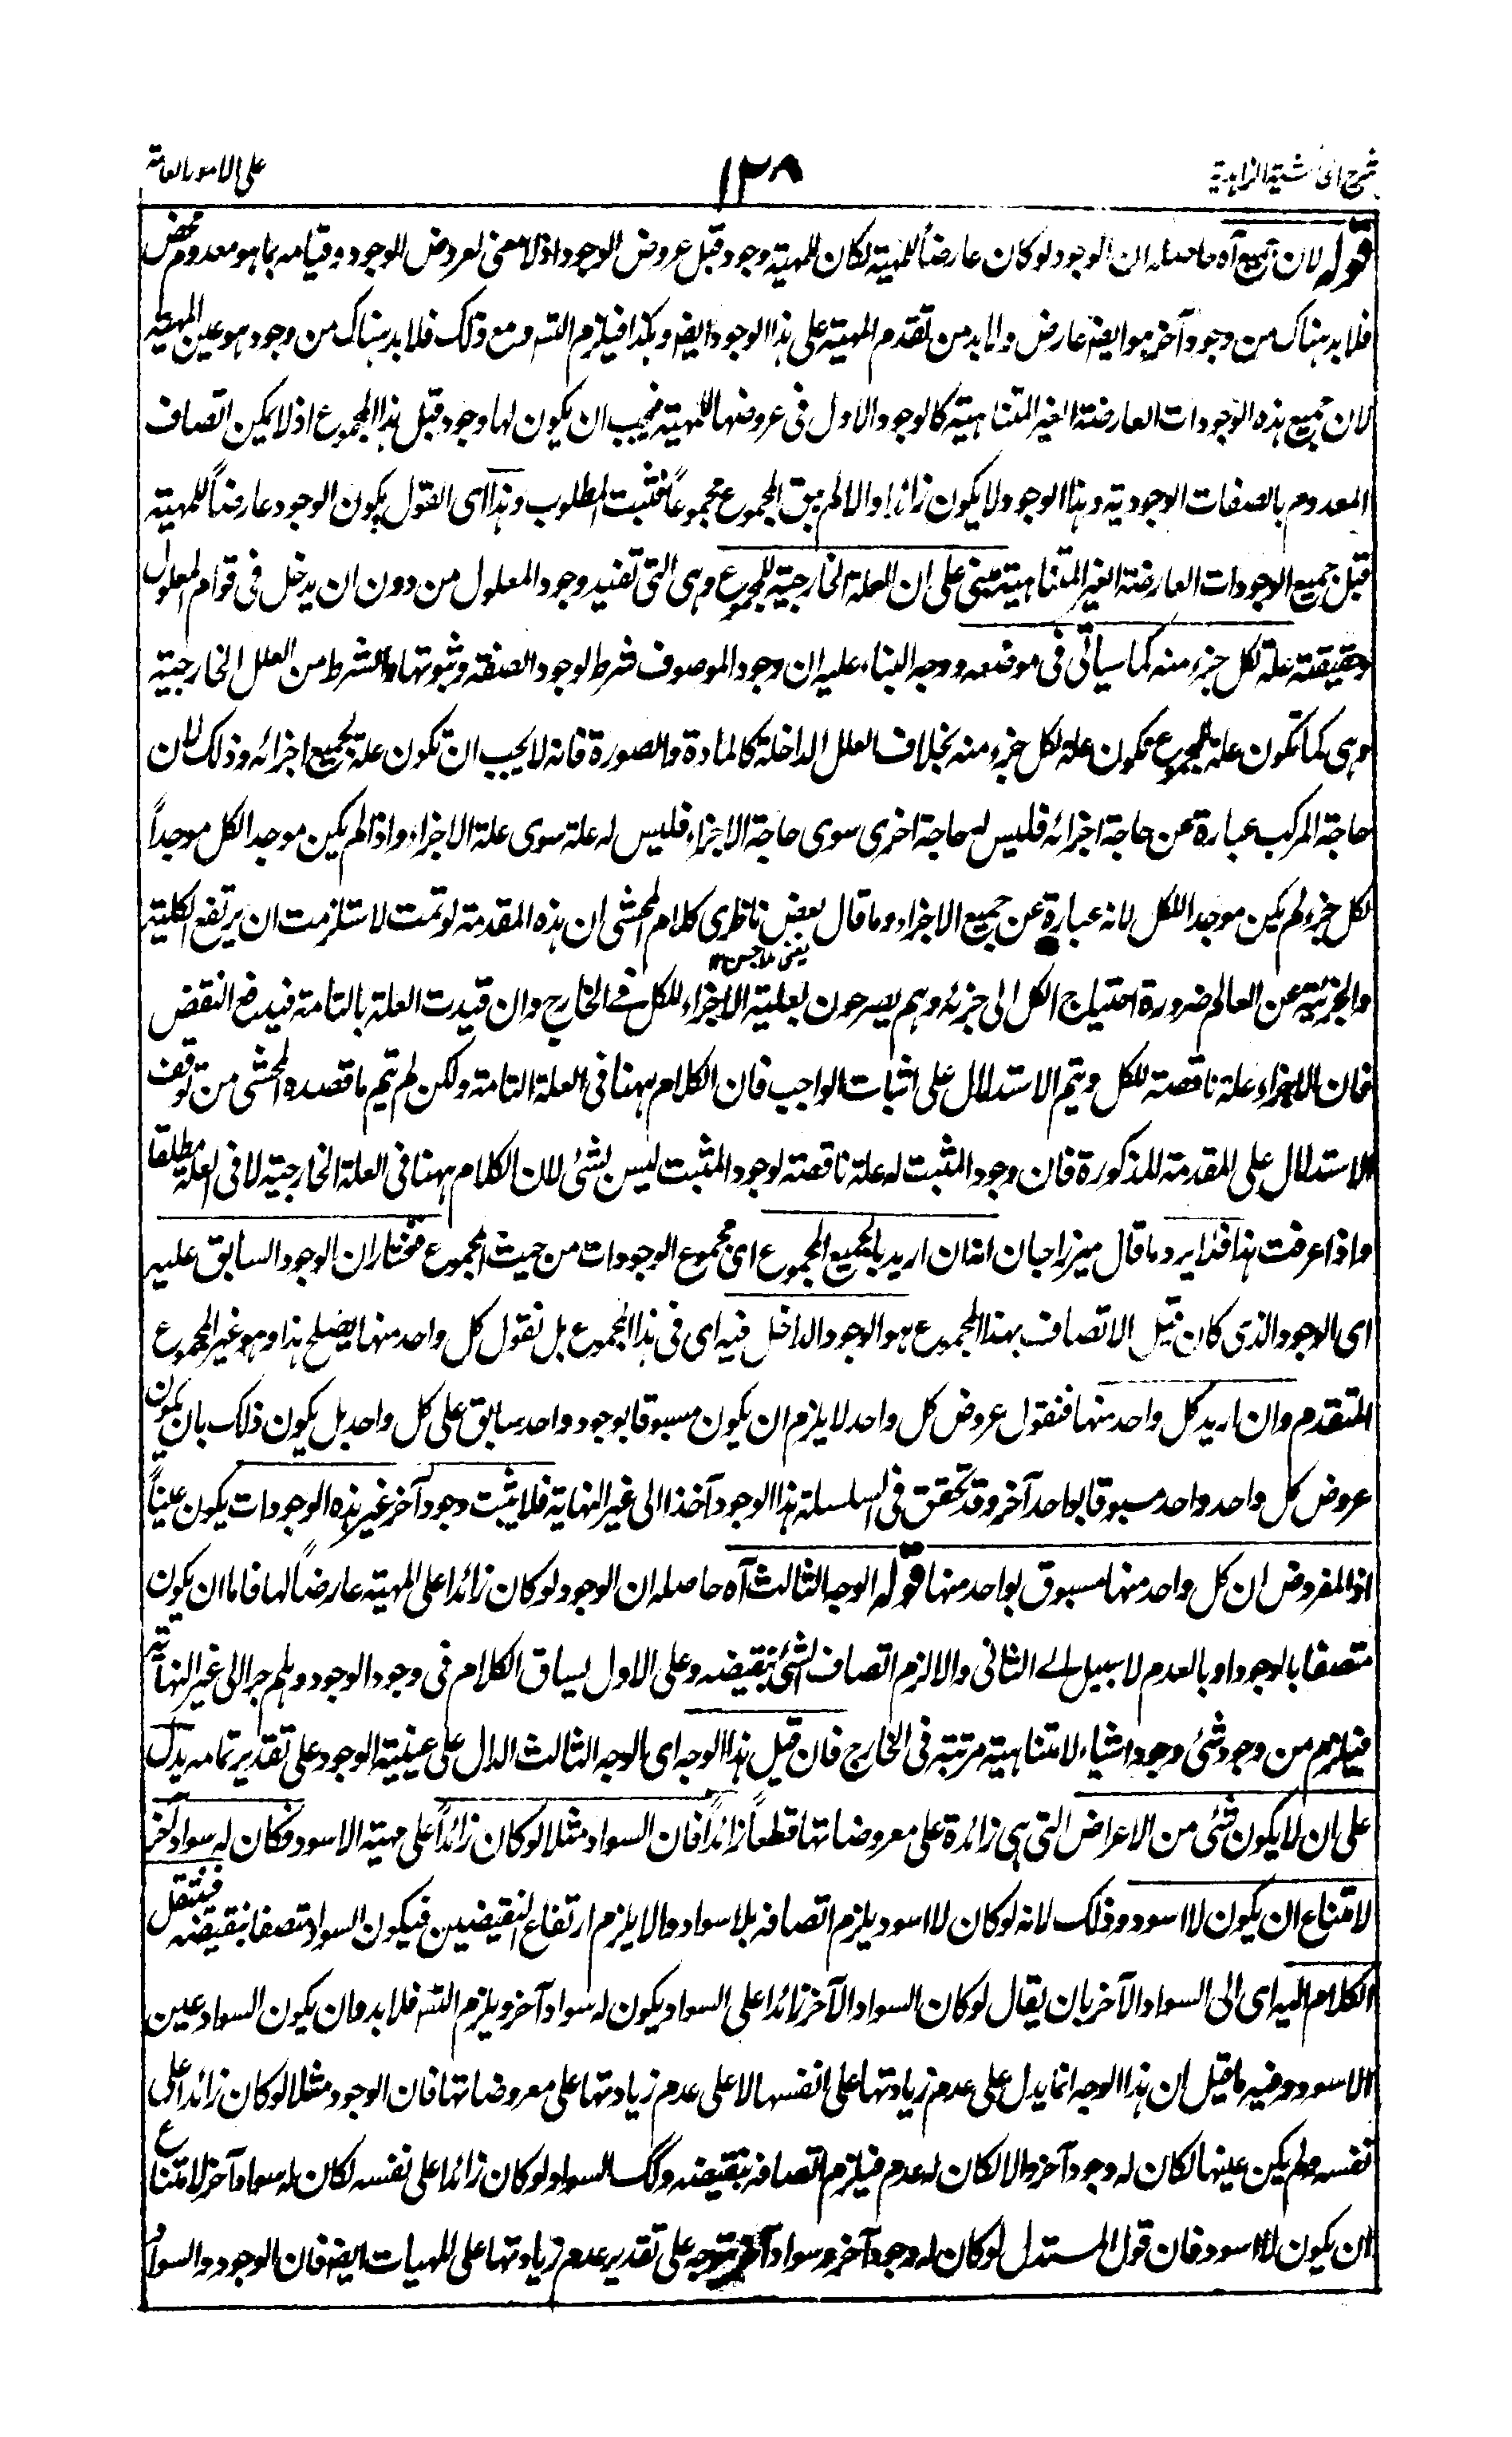 شرح الحاشية الزاهدية ١٢٨ على الامور العامة
قوله لان جميع آه حاصله ان الوجود لو كان عارضاً للمهية لكان للمهية وجود قبل عروض الوجود اذ لا معنى لعروض الوجود وقيامه بما هو معدوم محض
فلا بد هناك من وجود آخر هو ايضا عارض ولا بد من تقدم المهية على هذا الوجود ايضا وهكذا فيلزم التسـ ومع ذلك فلا بد هناك من وجود هو عين المهية
لان جميع هذه الوجودات العارضة الغير المتناهية كالوجود الاول فى عروضها للمهية فيجب ان يكون لها وجود قبل هذا المجموع اذ لا يمكن اتصاف
المعدوم بالصفات الوجودية وهذا الوجود لا يكون زائدا والا لم يبق المجموع مجموعاً فثبت المطلوب وهذا اى القول بكون الوجود عارضاً للمهية
قبل جميع الوجودات العارضة الغير المتناهية مبنى على ان العلة الخارجية للمجموع وهى التى تفيد وجود المعلول من دون ان يدخل فى قوام المعلول
وحقيقته علة لكل جزء منه كما سياتى فى موضعه ووجه البناء عليه ان وجود الموصوف شرط لوجود الصفة وثبوتها والشرط من العلل الخارجية
وهى كما تكون علة للمجموع تكون علة لكل جزء منه بخلاف العلل الداخلة كالمادة والصورة فانه لا يجب ان تكون علة لجميع اجزائه وذلك لان
حاجة المركب عبارة عن حاجة اجزائه فليس له حاجة اخرى سوى حاجة الاجزاء فليس له علة سوى علة الاجزاء واذا لم يكن موجد الكل موجداً
لكل جزء لم يكن موجدا للكل لانه عبارة عن جميع الاجزاء وما قال بعض ناظرى كلام المحشى ان هذه المقدمة لو تمت لاستلزمت ان يرتفع الكلية
يعنى ملا حسن ١٢
والجزئية عن العالم ضرورة احتياج الكل الى جزئه وهم يصرحون بعلية الاجزاء للكل فے الخارج وان قيدت العلة بالتامة فيدفع النقض
فان الاجزاء علة ناقصة للكل ويتم الاستدلال على اثبات الواجب فان الكلام ههنا فى العلة التامة ولكن لم يتم ما قصده المحشى من توقف
الاستدلال على المقدمة المذكورة فان وجود المثبت له علة ناقصة لوجود المثبت ليس بشئ لان الكلام ههنا فى العلة الخارجية لا فى العلة مطلقا
واذا عرفت هذا فلا يرد ما قال ميرزا جان انه ان اريد بالجميع المجموع اى مجموع الوجودات من حيث المجموع فنختار ان الوجود السابق عليه
اى الوجود الذى كان قبل الاتصاف بهذا المجموع هو الوجود الداخل فيه اى فى هذا المجموع بل نقول كل واحد منها يصلح هذا وهو غير المجموع
المتقدم وان اريد كل واحد منها فنقول عروض كل واحد لا يلزم ان يكون مسبوقا بوجود واحد سابق على كل واحد بل يكون ذلك بان يكون
عروض كل واحد واحد مسبوقا بواحد آخر وقد تحقق فى السلسلة هذا الوجود آخذا الى غير النهاية فلا يثبت وجود آخر غير هذه الوجودات يكون عيناً
اذ المفروض ان كل واحد منها مسبوق بواحد منها قوله الوجه الثالث آه حاصله ان الوجود لو كان زائدا على المهية عارضاً لها فاما ان يكون
متصفا بالوجود او بالعدم لا سبيل الے الثانى والا لزم اتصاف الشئ بنقيضه وعلى الاول يساق الكلام فى وجود الوجود وهلم جرا الى غير النهاية
فيلزم من وجود شئ وجود اشياء لا متناهية مرتبة فى الخارج فان قيل هذا الوجه اى الوجه الثالث الدال على عينية الوجود على تقدير تمامه يدل
على ان لا يكون شئ من الاعراض التى هى زائدة على معروضاتها قطعاً زائداً فان السواد مثلا لو كان زائداً على مهية الاسود فكان له سواد آخر
لامتناع ان يكون لا اسود وذلك لانه لو كان لا اسود يلزم اتصافه بلا سواد والا يلزم ارتفاع النقيضين فيكون السواد متصفا بنقيضه فننقل
الكلام اليه اى الى السواد الآخر بان يقال لو كان السواد الآخر زائدا على السواد يكون له سواد آخر ويلزم التسـ فلا بد وان يكون السواد عين
الاسود وفيه ما قيل ان هذا الوجه انما يدل على عدم زيادتها على انفسها لا على عدم زيادتها على معروضاتها فان الوجود مثلا لو كان زائدا على
نفسه ولم يكن عينها لكان له وجود آخر والا لكان له عدم فيلزم اتصافه بنقيضه وكذلك السواد لو كان زائدا على نفسه لكان له سواد آخر لامتناع
ان يكون لا اسود فان قول المستدل لو كان له وجود آخر وسواد آخر متوجه على تقدير عدم زيادتها على المهيات ايضا فان الوجود والسواد